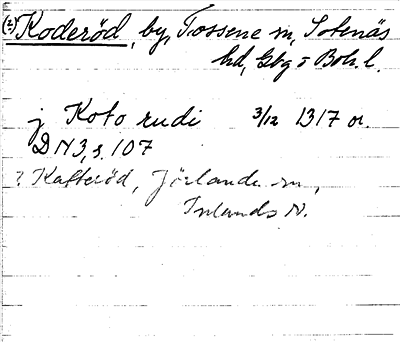 (?) Koderöd, by, Tossene sn, Sotenäs
hd, Gbg o Boh. l.
j Koto rudi 3/12 1317 or.
DN 3, s. 107
? Kafteröd, Jörlanda sn,
Inlands N.